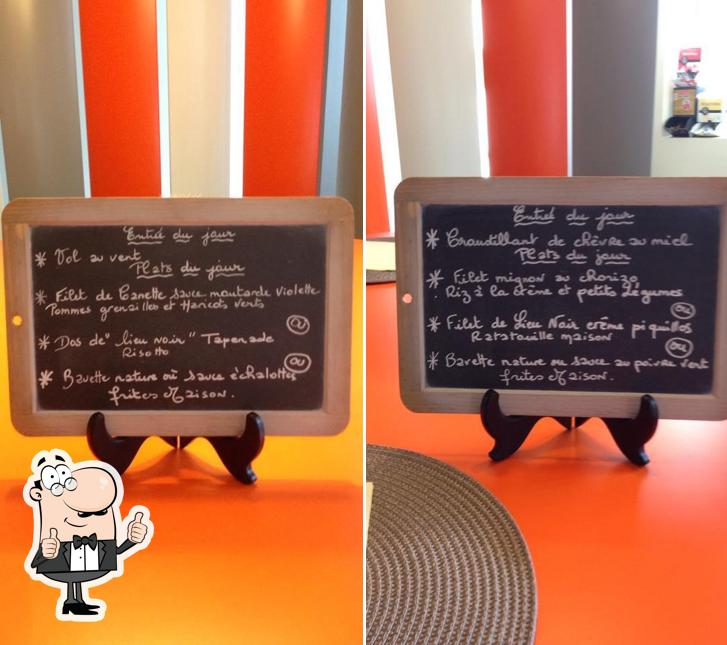 Entrée du jour
* Vol au vent
Plats du jour
* Filet de Canette sauce moutarde violette
Pommes grenailles et Haricots verts
ou
* Dos de "lieu noir" Tapenade
Risotto
ou
* Bavette nature où sauce échalottes
frites Maison.
Entrée du jour
* Croustillant de chèvre au miel
Plats du jour
* Filet mignon au chorizo
. Riz à la crème et petits légumes
ou
* Filet de Lieu Noir crème piquillos
Ratatouille maison
ou
* Bavette nature ou sauce au poivre vert
frites Maison.